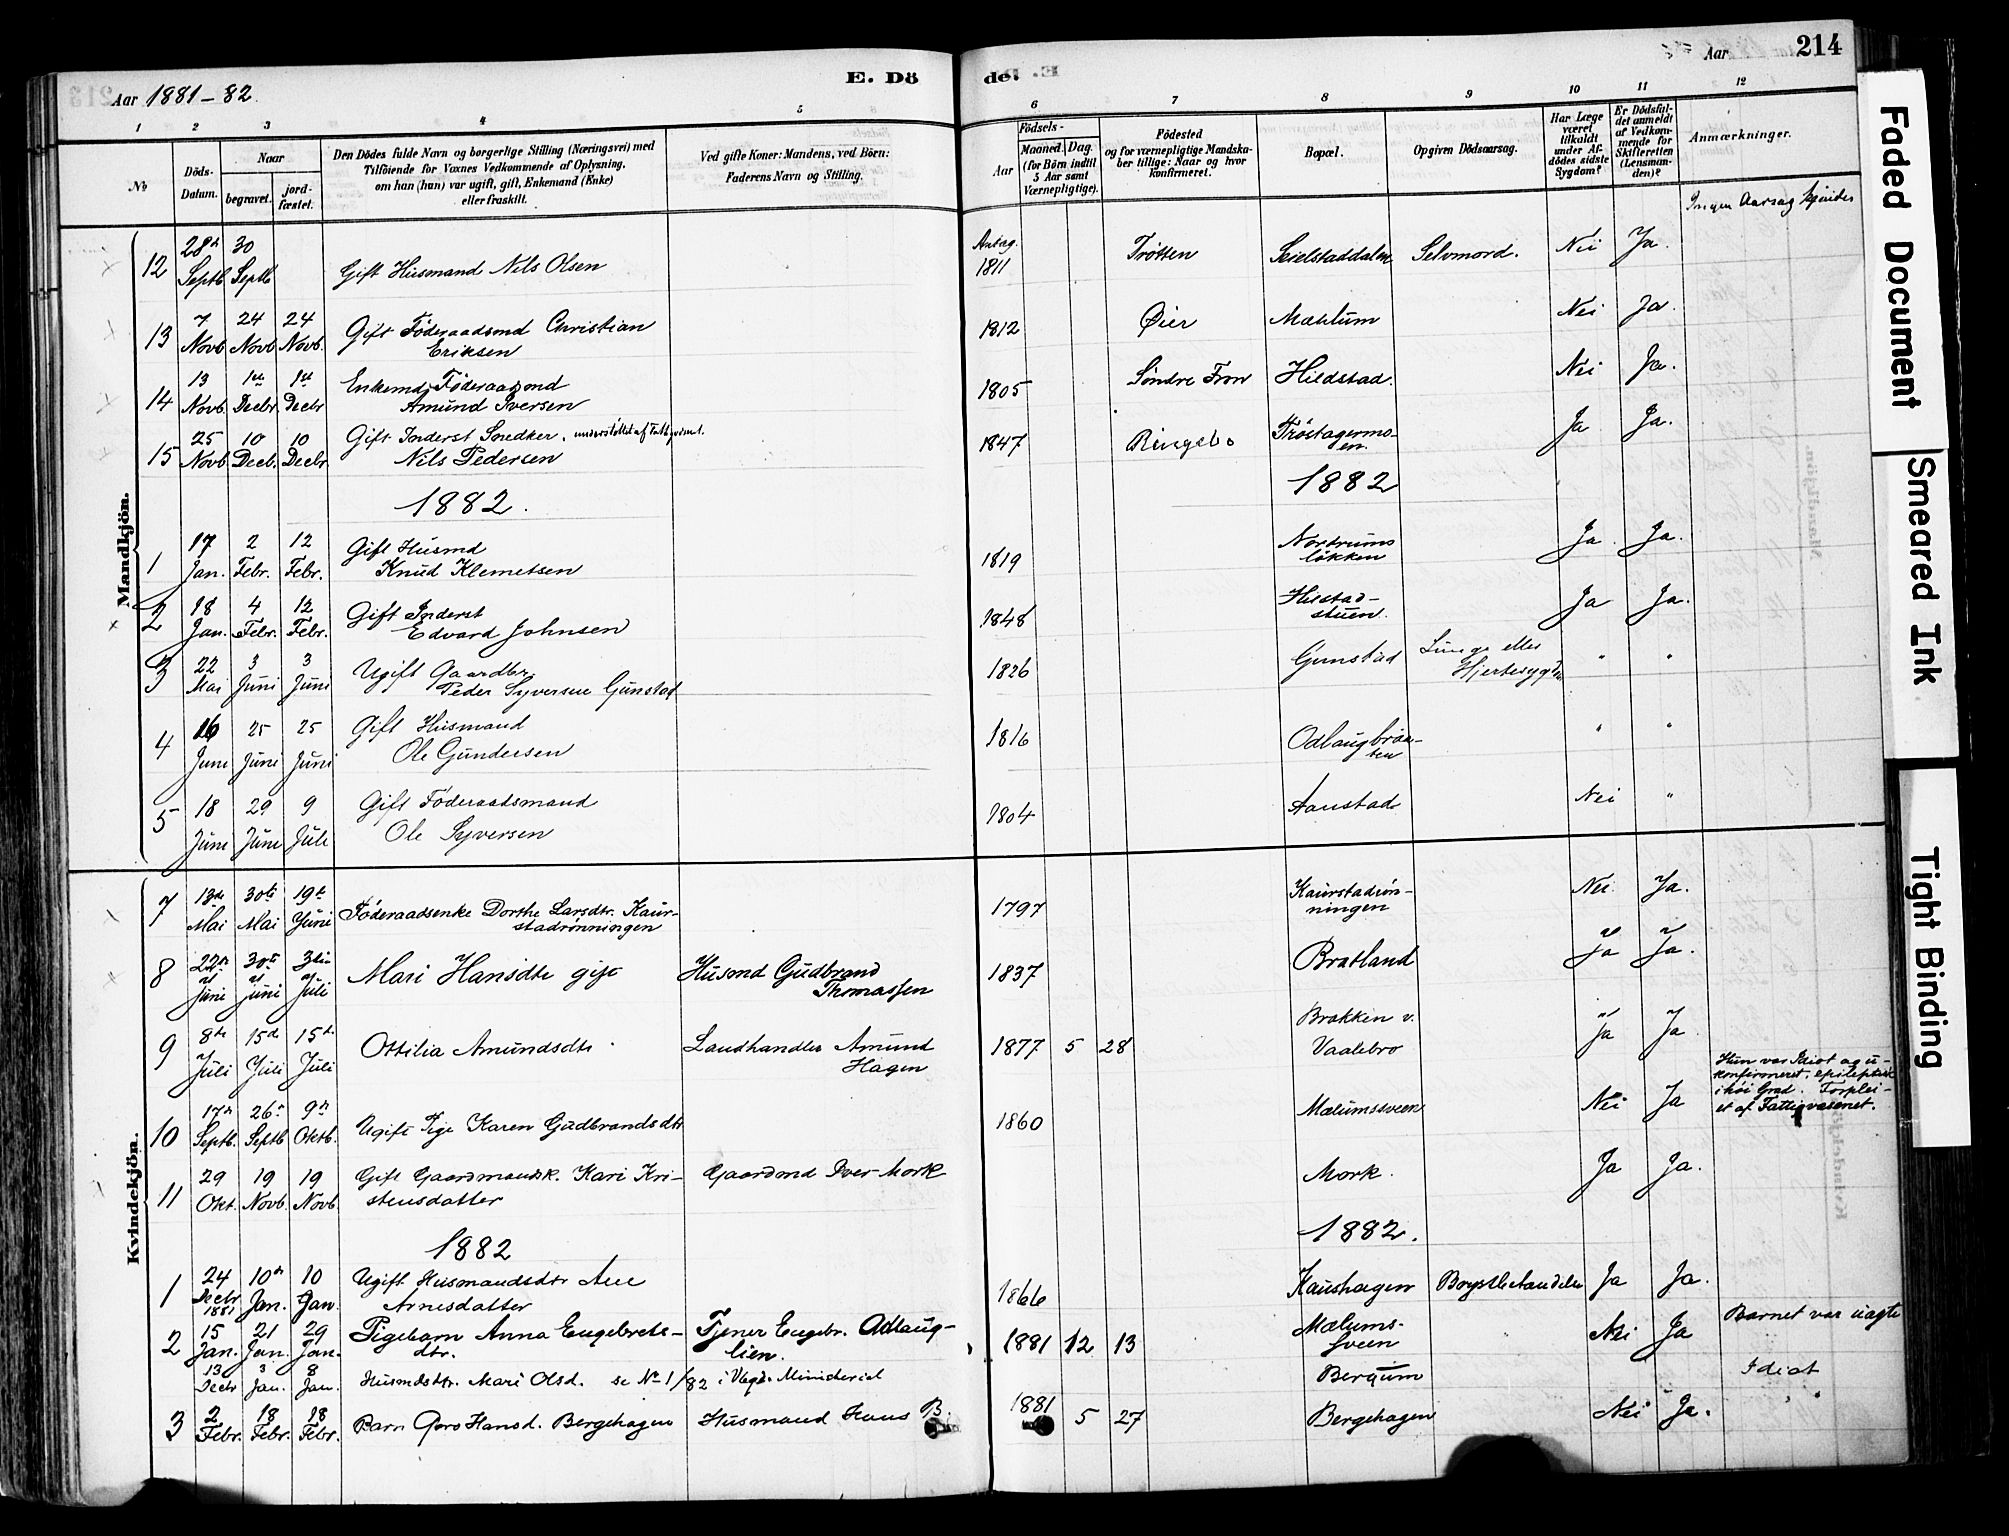 Aar 1881-82.
E. Dö
de.
Aar
214
1
2
3
4
5
6
7
8
9
10
11
12
No
Döds-
Datum.
Naar
begravet.
jord-
fæstet.
Den Dödes fulde Navn og borgerlige Stilling (Næringsvei) med
Tilföiende for Voxnes Vedkommende af Oplysning,
om han (hun) var ugift, gift, Enkemand (Enke)
eller fraskilt.
Ved gifte Koner: Mandens, ved Börn:
Faderens Navn og Stilling.
Födsels-
Aar
Maaned.
Dag.
(for Börn indtil
5 Aar samt
Værnepligtige).
Födested
og for værnepligtige Mandska-
ber tillige: Naar og hvor
konfirmeret.
Bopæl.
Opgiven Dödsaarsag.
Har Læge
været
tilkaldt
under Af-
dödes sidste
Sygdom?
Er Dödsfal-
det anmeldt
af Vedkom-
mende for
Skifteretten
(Lensman-
den)?
Anmærkninger.
Mandkjön.
12 28de Septb 30 Septb Gift Husmand Nils Olsen Antag. 1811 Trötten Seielstaddalen Selvmord. Nei Ja. Ingen Aarsag kjendes
13 7 Novb 24 Novb 24 Novb. Gift Föderaadsmd Christian
Eriksen 1812 Øier Mæhlum Nei Ja.
14 13 Novb. 1ste Decbr. 1ste Decbr Enkemd, Föderaadsmd
Amund Iversen 1805 Söndre Fron Hildstad. Nei Ja.
15 25 Novb. 10 Decb. 10 Decbr Gift Inderst Snedker. understöttet af
Nils Pedersen 1847 Ringebo Tröstagermo-
en. Ja Ja.
1882. 1882
1 17 Jan. 2 Febr. 12 Febr. Gift Husmd
Knud Klemetsen 1819 Nordrums
lökken Ja. Ja.
2 18 Jan. 4 Febr. 12 Febr. Gift Inderst
Edvard Johnsen 1848 Hilstad-
stuen. Ja Ja.
3 22 Mai 3 Juni 3 Juni Ugift Gaardbr.
Peder Syversen Gunstad 1826 Gunstad Lunge eller
Hjertesygdm " "
4 16 Juni 25 Juni 25 Juni Gift Husmand
Ole Gundersen 1816 Odlaugbraa-
ten " "
5 18 Juni 29 Juni 9 Juli Gift Föderaadsmand
Ole Syversen 1804 Aanstad Nei "
Kvindekjön.
7 13de Mai 30te Mai 19de Juni Föderaadsenke Dorthe Larsdtr. Kaur-
stadrönningen 1797 Kaurstadrön-
ningen Nei. Ja.
8 22de Juni 30te Juni 3die Juli Mari Hansdtr gift Husmd Gudbrand
Thomassen 1837 Bratland Ja Ja.
9 8de Juli 15de Juli 15de Juli Ottilia Amundsdtr Landhandler Amund
Hagen 1877 5 28 Brakken v.
Vaalebro Ja Ja
10 17de Septb. 26de Septb 9de Oktb. Ugift Pige Karen Gudbrandsdtr 1860 Mælumssveen Nei Ja Hun var Idiot og u-
konfirmeret, epileptisk
i höi Grad. Forplei-
et af Fattigvæsenet.
11 29 Okt. 19 Novb. 19 Novb. Gift Gaardmandsk. Kari Kri-
stensdatter Gaardmd Iver Mork Mork. Ja Ja.
1882 1882.
1 24 Decbr 1881 10de Jan. 10 Jan. Ugift Husmandsdtr Ane
Arnesdatter 1866 Kaushagen Brystbetændelse Ja Ja.
2 15 Jan. 21 Jan. 29 Jan. Pigebarn Anna Engebrets-
dtr. Tjener Engebr. Odlaug-
lien. 1881 12 13 Mælums-
sveen Nei Ja Barnet var uægte
13 Decbr 3 Jan. 8 Jan. Husmdsdtr. Mari Olsd. se No 1/82 i Vegts Ministerial Bergum Idiot
3 2 Febr. 18 Febr. 18 Febr. Barn Goro Hansd. Bergehagen Husmand Hans B. 1881 5 27 Bergehagen Nei Ja. "
Faded Document
Smeared Ink
Tight Binding